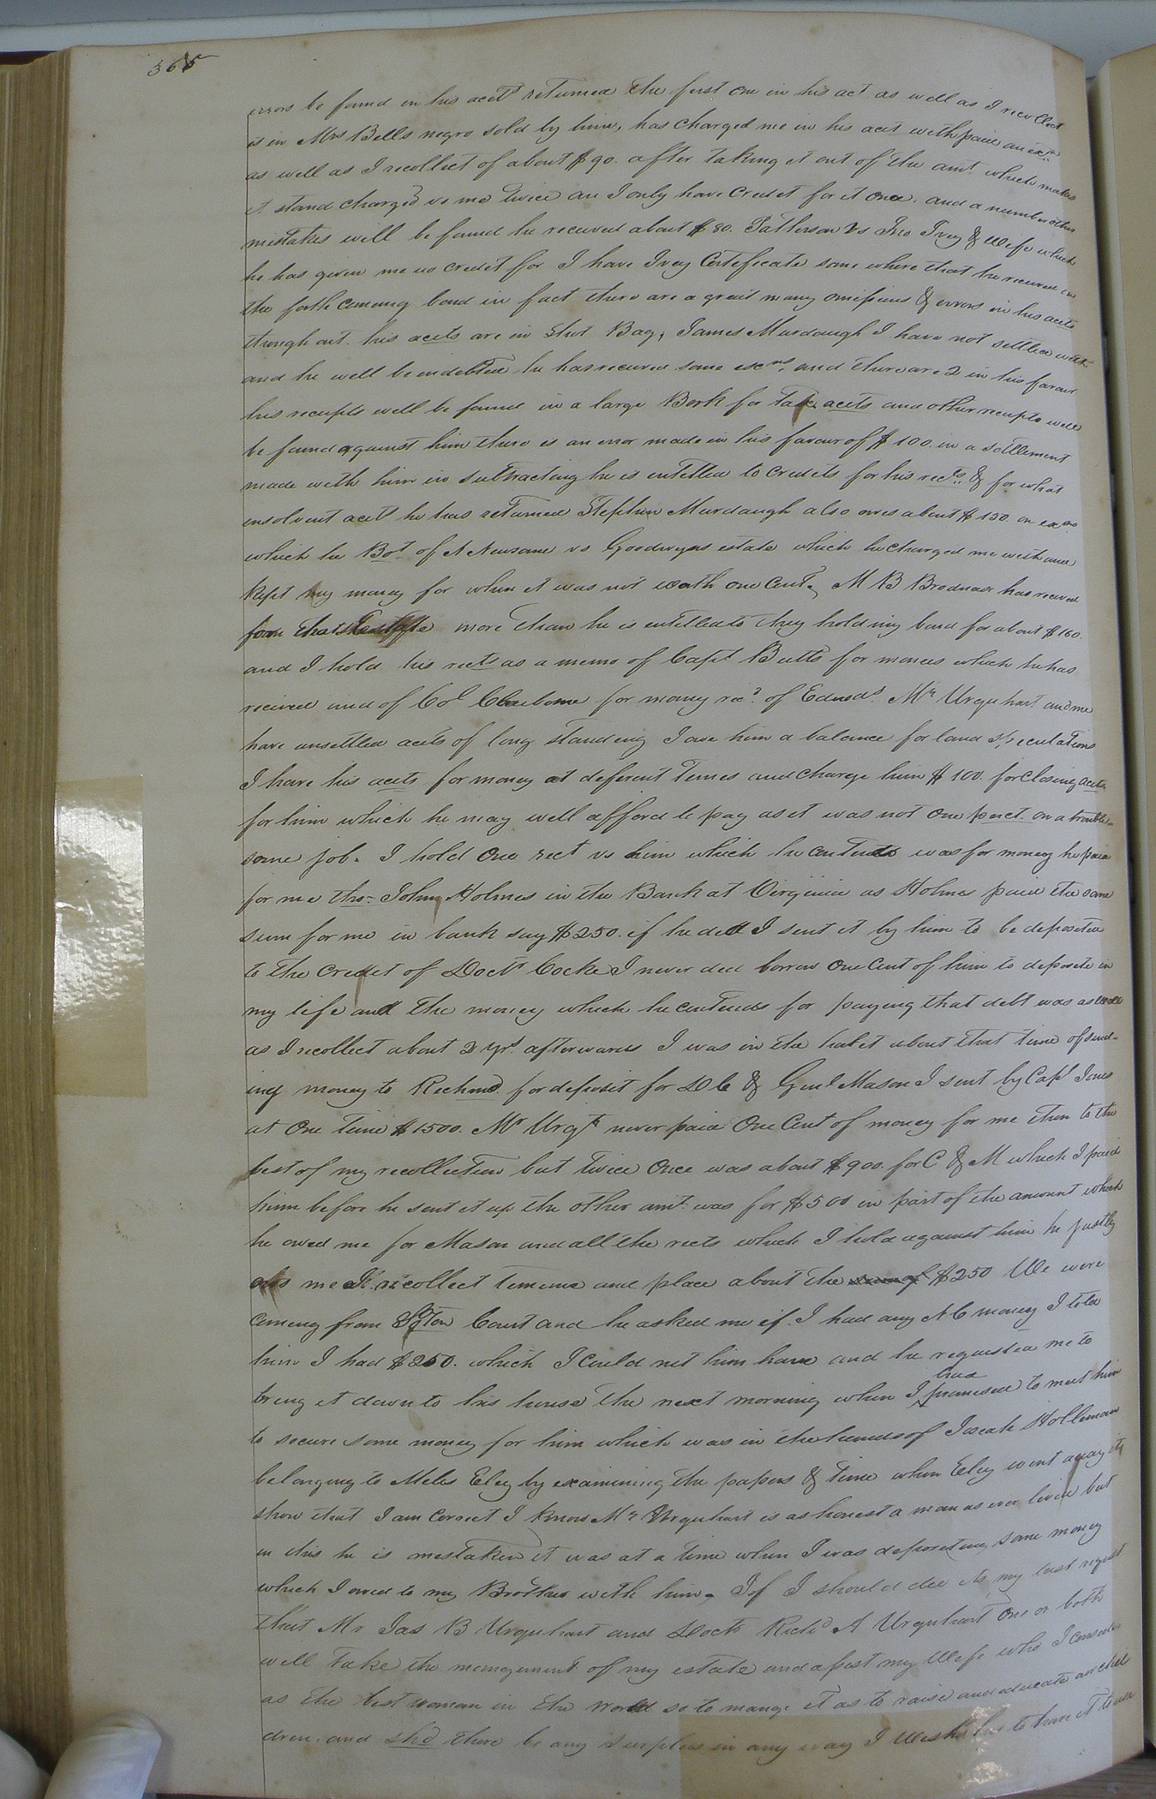 365
errors be found in his acct returned the first one in his act as well as I recollect
is in Mrs Bells negro sold by him, has charged me in his acct with paid an exn
as well as I recollect of about $90. after taking it out of the amt which makes
it stand charged vs me twice and I only have credit for it once. and a number other
mistakes will be found he received about $80. Patterson vs Jno Ivey & Wife which
he has given me no credit for I have Ivey Certificate some where that he received on
the forth coming bond in fact there are a great many omissions & errors in his accts
through out his accts are in Shot Bag, James Murdaugh I have not settled with
and he will be indebted he has received some excns and there are 2 in his favour
his receipts will be found in a large Book for accts and other receipts will
be found against him there is an error made in his favour of $100. in a settlement
made with him in subtracting he is intitled to credits for his recs & for what
insolvent accts he has returned Stephen Murdaugh also owes about $150. on exn
which he Bot of A Newsome vs Goodwyns estate which he charged me with and
kept my money for when it was not worth one Cent, M B Brodnax has received
from that more than he is intitled to they hold my bond for about $160.
and I hold his rects as a memo of Capt Butts for monies which he has
recieved and of Col Claiborne for money recd of Edmds. Mr Urquhart and me
have unsettled accts of long standing I owe him a balance for land speculations
I have his accts for money at different times and charge him $100. for closing accts
for him which he may well afford to pay as it was not one perct. on a trouble=
some job. I hold one rect vs him which he contends was for money he paid
for me thro= John Holmes in the Bank at Virginia as Holmes paid the same
sum for me in bank say $250. if he did I sent it by him to be deposited
to the credit of Doctr Cocke I never did borrow one Cent of him to deposite in
my life and the money which he contends for paying that debt was as well
as I recollect about 2 yrs. afterwards I was in the habit about that time of send=
ing money to Richmd. for deposit for D C & Genl Mason I sent by Capt Jones
at one time $1500. Mr Urqt never paid One Cent of money for me then to the
best of my recollection but twice Once was about $900. for C & M which I paid
him before he sent it up the other amt. was for $500 in part of the amount which
he owed me for Mason and all the rects which I hold against him he justly
owes me I recollect time and place about the sum of $250 We were
coming from SoTon Court and he asked me if I had any N C money I told
him I had $250. which I could let him have and he requested me to
bring it down to his house the next morning when I had promised to meet him
to secure some money for him which was in the hands of Josiah Holleman
belonging to Miles Eley by examining the papers & time when Eley went away it
show that I am correct I know Mr Urquhart is as honest a man as ever lived but
in this he is mistaken it was at a time when I was depositing some money
which I owed to my Brother with him. If I should die its my last request
that Mr Jas B Urquhart and Doctr Richd A Urquhart one or both
will take the management of my estate and assist my Wife who I consider
as the best woman in the world so to manage it as to raise and educate our chil
dren. and shd there be any surplus in any way I Wish her to have it